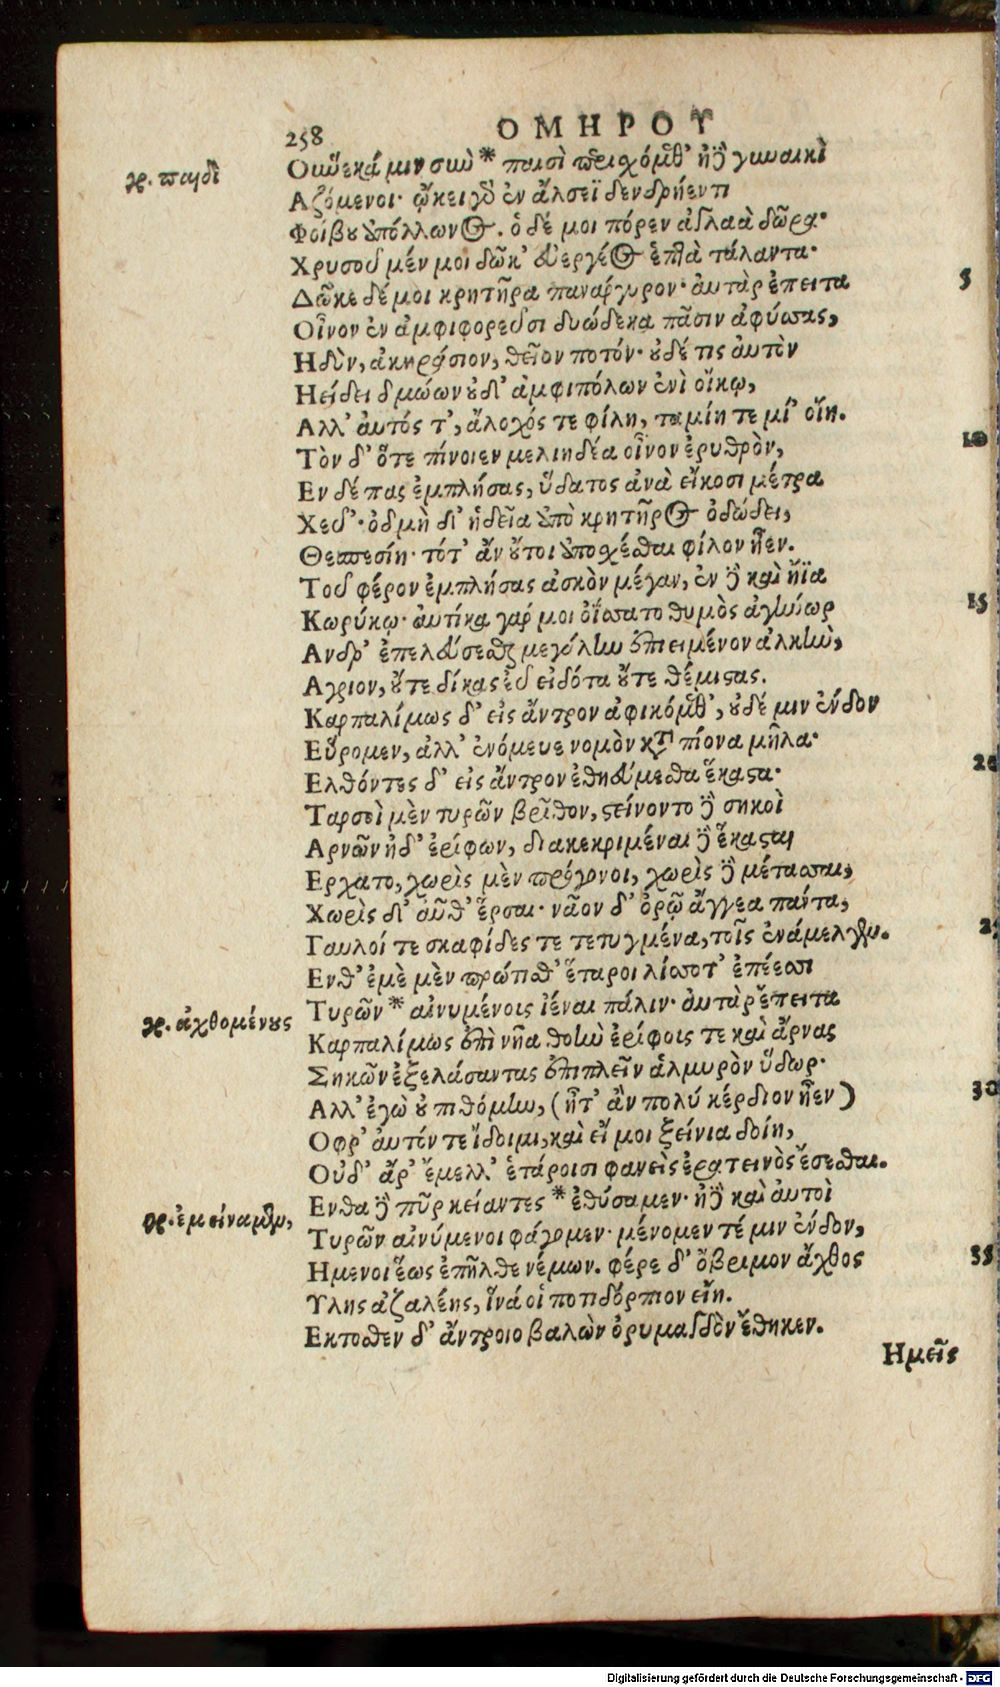 258 ΟΜΗΡΟΥ
Οὕνεκά μιν σὺν * παισὶ περιχόμεθ' ἠδὲ γυναικὶ
γρ. παιδὶ
Αζόμενοι· ᾤκει γὰρ ἐν ἄλσεϊ δενδρήεντι
Φοίβου Ἀπόλλωνος. ὁ δέ μοι πόρεν ἀγλαὰ δῶρα·
Χρυσοῦ μέν μοι δῶκ' εὐεργέος ἑπτὰ τάλαντα·
Δῶκε δέ μοι κρητῆρα πανάργυρον· ἀυτὰρ ἔπειτα 5
Οἶνον ἐν ἀμφιφορεῦσι δυώδεκα πᾶσιν ἀφύσσας,
Ηδὺν, ἀκηράσιον, θεῖον ποτόν· οὐδέ τις ἀυτὸν
Ηείδει δμώων οὐδ' ἀμφιπόλων ἐνὶ οἴκῳ,
Αλλ' ἀυτός τ', ἄλοχός τε φίλη, ταμίη τε μί' οἴη.
Τὸν δ' ὅτε πίνοιεν μελιηδέα οἶνον ἐρυθρὸν, 10
Εν δέπας ἐμπλήσας, ὕδατος ἀνὰ εἴκοσι μέτρα
Χεῦ'· ὀδμὴ δ' ἡδεῖα ἀπὸ κρητῆρος ὀδώδει,
Θεσπεσίη· τότ' ἂν οὔτοι ἀποσχέσθαι φίλον ἦεν.
Τοῦ φέρον ἐμπλήσας ἀσκὸν μέγαν, ἐν δὲ καὶ ἤϊα
Κωρύκῳ· ἀυτίκα γάρ μοι ὀΐσσατο θυμὸς ἀγήνωρ 15
Ανδρ' ἐπελεύσεσθαι μεγάλην ἐπιειμένον ἀλκὴν,
Αγριον, οὔτε δίκας εὖ εἰδότα οὔτε θέμιστας.
Καρπαλίμως δ' εἰς ἄντρον ἀφικόμεθ', οὐδέ μιν ἔνδον
Εὕρομεν, ἀλλ' ἐνόμευε νομὸν κάτα πίονα μῆλα·
Ελθόντες δ' εἰς ἄντρον ἐθηεύμεσθα ἕκαστα· 20
Ταρσοὶ μὲν τυρῶν βρῖθον, στείνοντο δὲ σηκοὶ
Αρνῶν ἠδ' ἐρίφων, διακεκριμέναι δὲ ἕκασται
Ερχατο, χωρὶς μὲν πρόγονοι, χωρὶς δὲ μέτασσαι,
Χωρὶς δ' αὖθ' ἕρσαι· νᾶον δ' ὀρῷ ἄγγεα πάντα,
Γαυλοί τε σκαφίδες τε τετυγμένα, τοῖς ἐνάμελγεν.
Ενθ' ἐμὲ μὲν πρώτισθ' ἕταροι λίσσοτ' ἐπέεσσι
Τυρῶν * αἰνυμένοις ἰέναι πάλιν· ἀυτὰρ ἔπειτα
γρ. ἀχθομένους
Καρπαλίμως ἐπὶ νῆα θοὴν ἐρίφοις τε καὶ ἄρνας
Σηκῶν ἐξελάσαντας ἐπιπλεῖν ἁλμυρὸν ὕδωρ·
Αλλ' ἐγὼ οὐ πιθόμην, (ἦτ' ἂν πολύ κέρδιον ἦεν) 30
Οφρ' ἀυτόν τε ἴδοιμι, καὶ εἴ μοι ξείνια δοίη,
Οὐδ' ἄρ' ἔμελλ' ἑτάροισι φανεὶς ἐρατεινὸς ἔσεσθαι.
Ενθα δὲ πῦρ κείαντες * ἐθύσαμεν· ἠδὲ καὶ ἀυτοὶ
γρ. ἐμείναμεν,
Τυρῶν αἰνύμενοι φάγομεν· μένομεν τέ μιν ἔνδον,
Ημενοι ἕως ἐπῆλθε νέμων. φέρε δ' ὄβριμον ἄχθος 35
Υλης ἀζαλέης, ἵνά οἱ ποτιδόρπιον εἴη.
Εκτοσθεν δ' ἄντροιο βαλὼν ὀρυμαγδὸν ἔθηκεν.
Ημεῖς
Digitalisierung gefördert durch die Deutsche Forschungsgemeinschaft - DFG